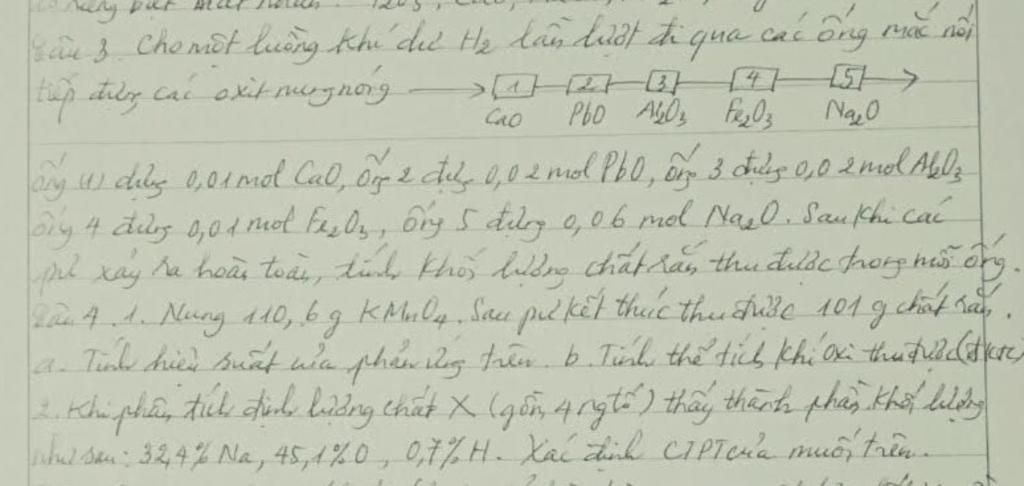 Câu 3. Cho một luồng khí dư H₂ lần lượt đi qua các ống mắc nối
tiếp đựng các oxit nung nóng → 1 2 3 4 5
CaO PbO Al₂O₃ Fe₂O₃ Na₂O
ống (1) đựng 0,01 mol CaO, ống 2 đựng 0,02 mol PbO, ống 3 đựng 0,02 mol Al₂O₃
ống 4 đựng 0,01 mol Fe₂O₃, ống 5 đựng 0,06 mol Na₂O. Sau khi các
pứ xảy ra hoàn toàn, tính khối lượng chất rắn thu được trong mỗi ống.
Câu 4. 1. Nung 110,6 g KMnO₄. Sau pứ kết thúc thu được 101 g chất rắn.
a. Tính hiệu suất của phản ứng trên. b. Tính thể tích khí oxi thu được (đktc)
2. Khi phân tích định lượng chất X (gồm 4 ngtố) thấy thành phần khối lượng
như sau: 32,4% Na, 45,1% O, 0,7% H. Xác định CTPT của muối trên.